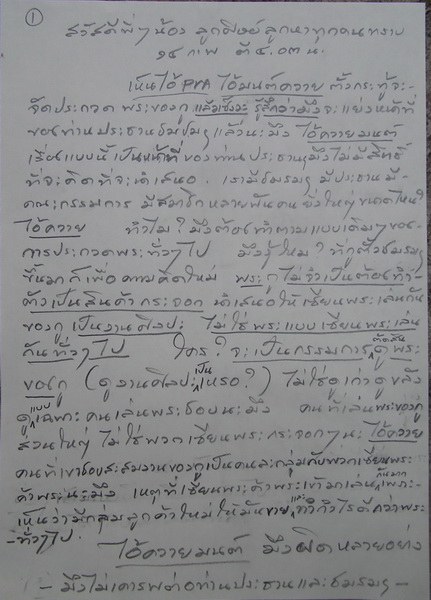 ①
สวัสดีพี่ๆน้อง ลูกศิษย์ลูกหาทุกคนทราบ
๑๔ กพ ตี ๔.๐๓ น.
เห็นไอ้ PVA ไอ้มนต์ควาย ตั้งกระทู้จะ-
จัดประกวด พระของกู แล้วเซ็งว่ะ รู้สึกว่ามึงจะแย่งหน้าที่
ของท่านประธานชมรมๆ แล้วนะมึง ไอ้ควายมนต์
เรื่องแบบนี้เป็นหน้าที่ของท่านประธานๆ มึงไม่มีสิทธิ์
ที่จะคิดที่จะนำเสนอ. เรามีชมรมๆ มีประธาน มี-
คณะกรรมการ มีสมาชิกหลายพันคน ยิ่งใหญ่ขนาดไหน?
ไอ้ควาย ทำไม? มึงต้องทำตามแบบเดิมๆ ของ-
การประกวดพระทั่วๆไป มึงรู้ไหม? ที่กูตั้งชมรม
ขึ้นมาก็เพื่อความคิดใหม่ พระกูไม่จำเป็นต้องทำ-
ตัวเป็นสินค้ากระจอก นำเสนอให้เซียนพระเล่นกัน
ของกูเป็นงานศิลปะ ไม่ใช่พระแบบเซียนพระเล่น
กันทั่วๆไป ใคร? จะเป็นกรรมการตัดสินดูพระ
ของกู (ดูงานศิลปะเป็นเหรอ?) ไม่ใช่ดูเก่าดูขลัง
ดูแบบเฉพาะคนเล่นพระชอบนะมึง คนที่เล่นพระของกู
ส่วนใหญ่ ไม่ใช่พวกเซียนพระกระจอกๆนะ ไอ้ควาย
คนที่เขาชอบสะสมงานของกูเป็นคนละกลุ่มกับพวกเซียนพระ
ค้าพระนะมึง เหตุที่เซียนพระค้าพระเข้ามาเล่นกันมากเพราะ-
เห็นว่ามีกลุ่มลูกค้าใหม่ให้มันขายและกำไรดีกว่าพระ
-ทั่วๆไป.
ไอ้ควายมนต์ มึงผิดหลายอย่าง
- มึงไม่เคารพต่อท่านประธานและชมรมๆ -